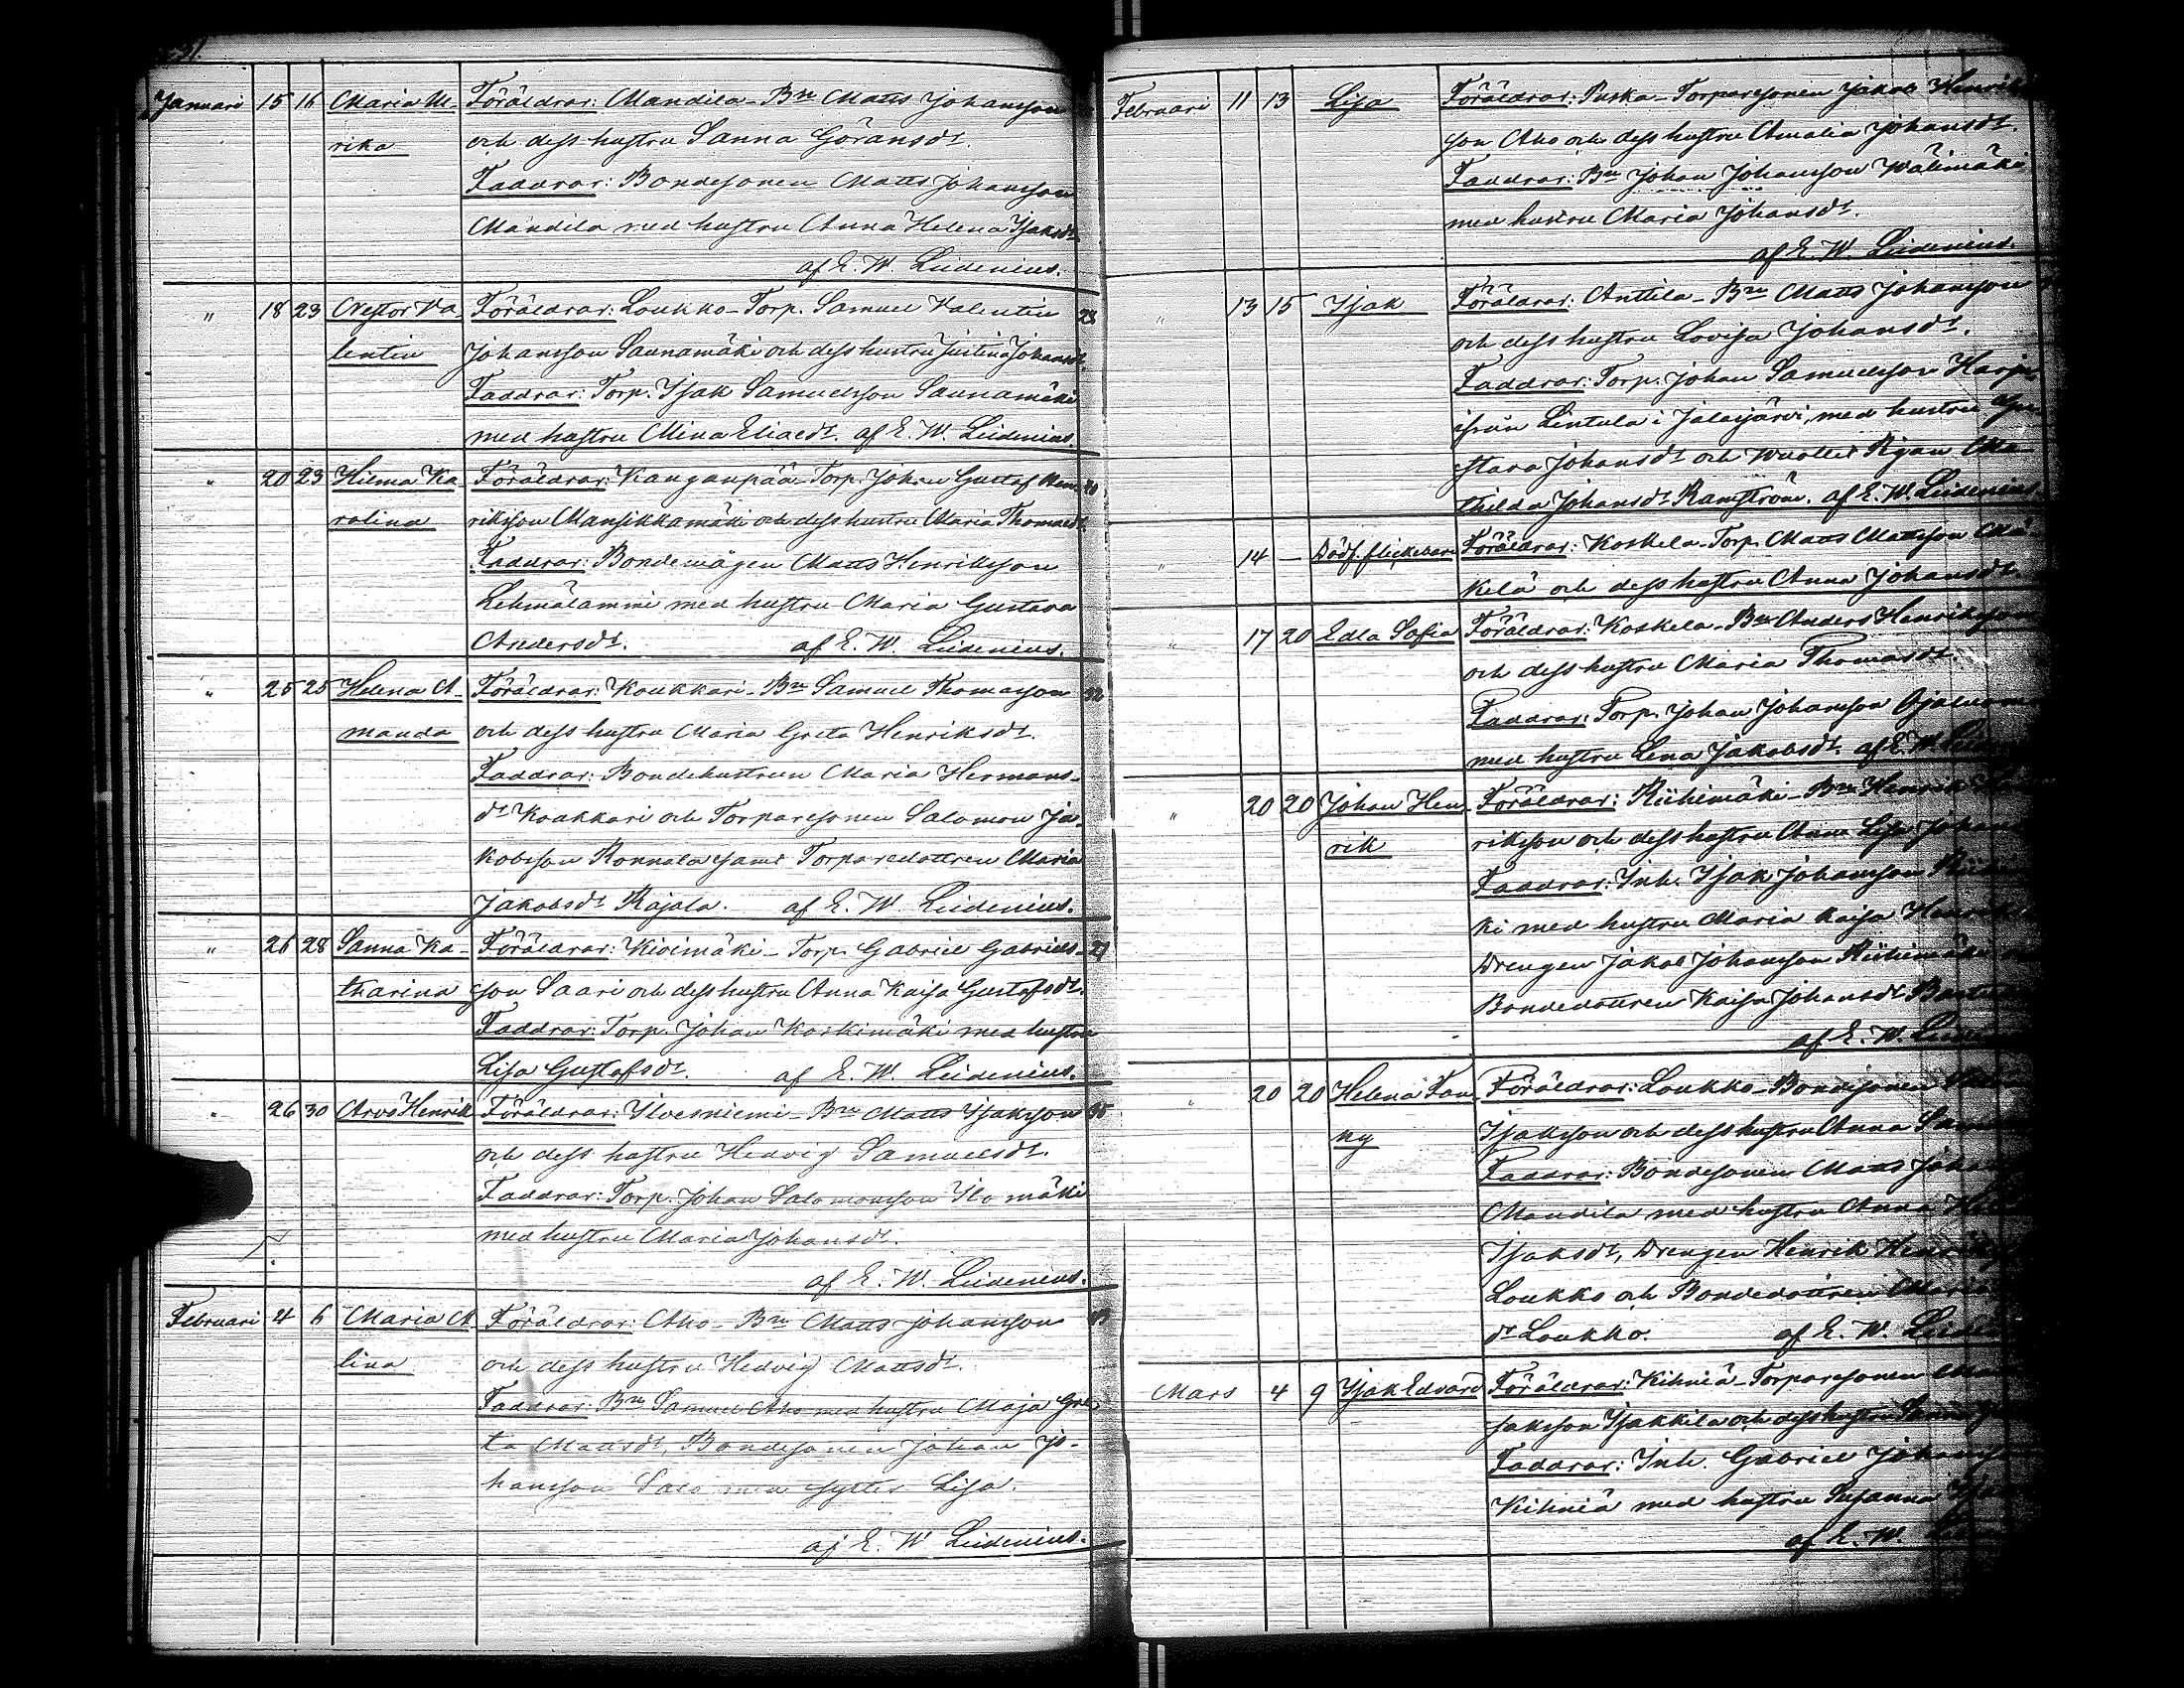 Januari 15 16 Maria Ul- Föräldrar: Mandila-Bn Matts Johansson
rika och dess hustru Sanna Göransdr.
Faddrar: Bondesonen Matts Johansson
Mandila med hustru Anna Helena Isaksdr
af E. W. Lidenius.
" 18 23 Nestor Va Föräldrar: Loukko-Torp. Samuel Valentin 28
lentin Johansson Saunamäki och dess hustru Justina Johansdr.
Faddrar: Torp. Isak Samuelsson Saunamäki
med hustru Mina Eliaedr. af E. W. Lidenius.
" 20 23 Hilma Ka Föräldrar: Kanganpää-Torp. Johan Gustaf Hen
rolina riksson Mansikkamäki och dess hustru Maria Thomaedr.
Faddrar: Bondemågen Matts Henriksson
Lehmälammi med hustru Maria Gustava
Andersdr. af E. W. Lidenius.
" 25 25 Helena A- Föräldrar: Koukkari-Bn Samuel Thomasson 32
manda och dess hustru Maria Greta Henriksdr.
Faddrar: Bondehustrun Maria Hermans-
dr Koukkari och Torparesonen Salomon Ja-
kobsson Ronnola samt Torparedottren Maria
Jakobsdr Rajala. af E. W. Lidenius.
" 26 28 Sanna Ka- Föräldrar: Kivimäki-Torp. Gabriel Gabriels-
tharina son Saari och dess hustru Anna Kaisa Gustafsdr.
Faddrar: Torp. Johan Koskimäki med hustru
Lisa Gustafsdr. af E. W. Lidenius.
" 26 30 Arvo Henrik Föräldrar: Ilvesniemi-Bn Matts Isaksson
och dess hustru Hedvig Samuelsdr.
Faddrar: Torp. Johan Salomonsson Ilomäki
med hustru Maria Johansdr.
af E. W. Lidenius.
Februari 4 6 Maria A Föräldrar: Aho-Bn Matts Johansson
lina och dess hustru Hedvig Mattsdr.
Faddrar: Bn Samuel Aho med hustru Maja Gre-
ta Mattsdr, Bondesonen Johan Jo-
hansson Salo med syster Lisa.
af E. W. Lidenius.
Februari 11 13 Lisa Föräldrar: Puska-Torparesonen Jakob Henrik
son Aho och dess hustru Amalia Johansdr.
Faddrar: Bn Johan Johansson Wälimäki
med hustru Maria Johansdr.
af E. W. Lidenius.
" 13 15 Isak Föräldrar: Anttila-Bn Matts Johansson
och dess hustru Lovisa Johansdr.
Faddrar: Torp. Johan Samuelsson Harju
ifrån Lintula i Jalasjärvi, med hustru
stava Johansdr och Pigan Ma-
thilda Johansdr Ramström. af E. W. Lidenius
" 14 — Dödf. flickebarn Föräldrar: Koskela-Torp. Matts Mattsson Mä-
kelä och dess hustru Anna Johansdr.
" 17 20 Edla Sofia Föräldrar: Koskela-Bn Anders Henriksson
och dess hustru Maria Thomasdr.
Faddrar: Torp. Johan Johansson
med hustru Lena Jakobsdr. af E. W.
" 20 20 Johan Hen- Föräldrar: Riihimäki-Bn Henrik
rik riksson och dess hustru Anna Lisa Johans
Faddrar: Inh. Isak Johansson
ki med hustru Maria Kaisa Henriks
Drengen Jakob Johansson Riihimäki
Bondedottren Kaisa Johansdr
af E. W.
" 20 20 Helena Fan- Föräldrar: Loukko-Bondesonen
ny Isaksson och dess hustru Anna
Faddrar: Bondesonen Matts Johans
Mandila med hustru Anna
Isaksdr, Drengen Henrik
Loukko och Bondedottren Maria
dr Loukko. af E. W.
Mars 4 9 Isak Edvard Föräldrar: Kihniä-Torparesonen
saksson Isakkila och dess hustru Sanna
Faddrar: Inh. Gabriel Johansson
Kihniä med hustru Susanna
af E. W.